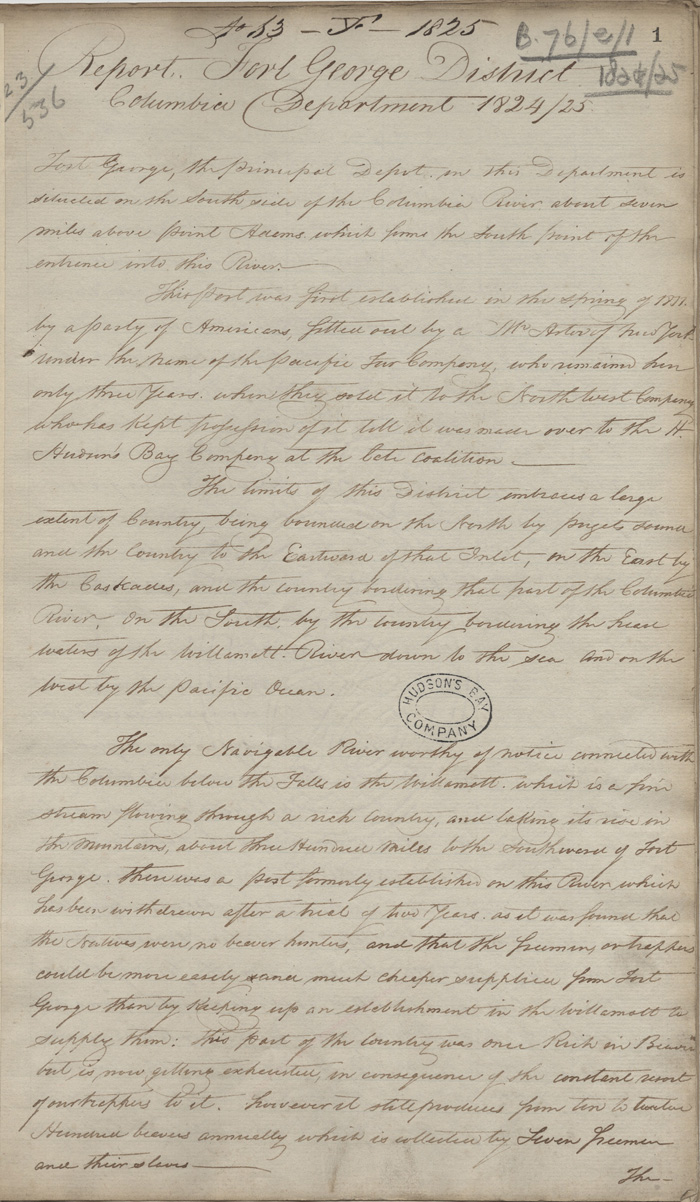 1825
B.76/e/1
1
1824/25
23/
536
Report. Fort George District
Columbia Department 1824/25
Fort George, the principal Depot. in this Department is
situated on the South side of the Columbia River about seven
miles above point Adams. which forms the South point of the
entrance into this River.
This Post was first established in the spring of 1811.
by a party of Americans, fitted out by a Mr. Astor of New York
under the name of the Pacific Fur Company, who remained here
only three Years. when they sold it to the North West Company
who has kept possession of it till it was made over to the H.
Hudson's Bay Company at the late coalition.
The limits of this District embraces a large
extent of Country, being bounded on the North by pugets sound
and the Country to the Eastward of that Inlet, on the East by
the Caskades, and the country bordering that part of the Columbia
River, On the South. by the country bordering the head
waters of the Willamatt. River down to the sea and on the
West by the Pacific Ocean.
HUDSON'S BAY
COMPANY
The only Navigable River worthy of notice connected with
the Columbia below the Falls is the Willamatt. which is a fine
stream flowing through a rich Country, and taking its rise in
the mountains, about three Hundred miles to the Southward of Fort
George. there was a post formerly established on this River which
has been withdrawn after a trial of two Years. as it was found that
the Natives were no beaver hunters, and that the freemen, or trappers
could be more easely and much cheaper supplied from Fort
George than by Keeping up an establishment in the Willamatt to
supply them: this part of the Country was once Rich in Beaver
but is now getting exhausted, in consequence of the constant resort
of our trappers to it. however it still produces from ten to twelve
Hundred beavers annually which is collected by Seven freemen
and their slaves
The